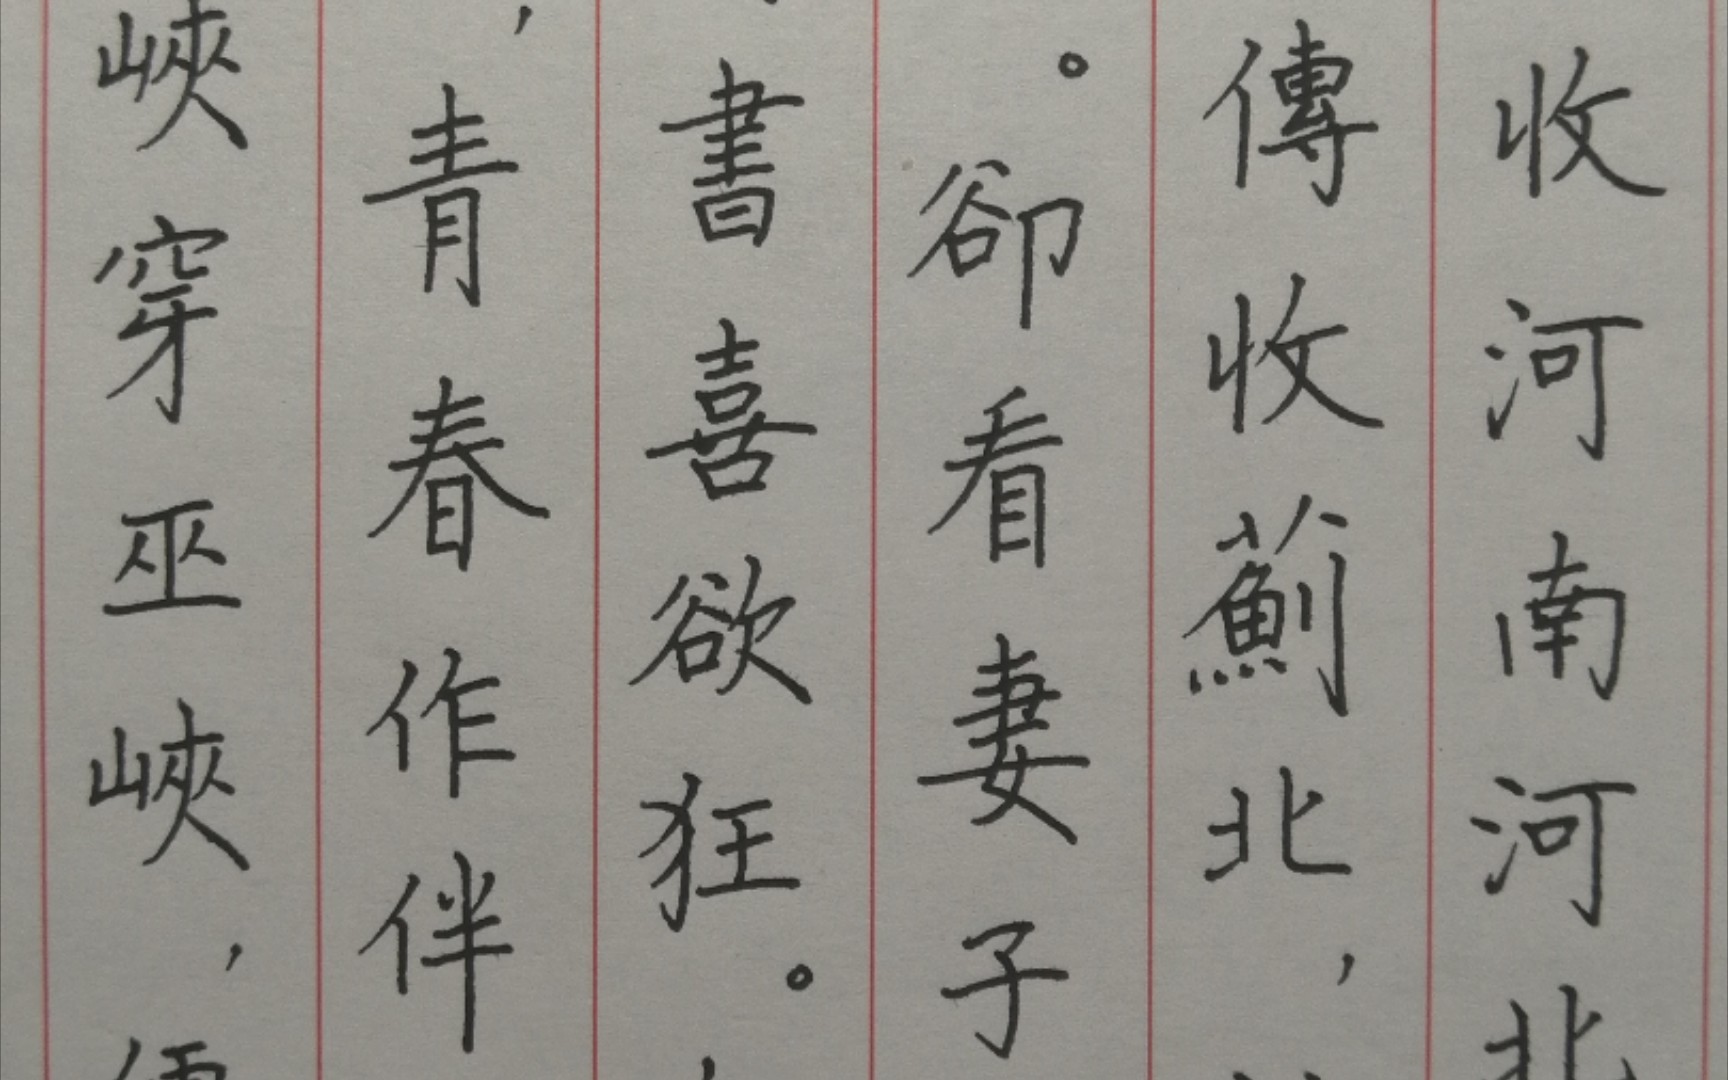 收河南河北
傳收薊北，
。卻看妻子
書喜欲狂。
，青春作伴
峽穿巫峽，便